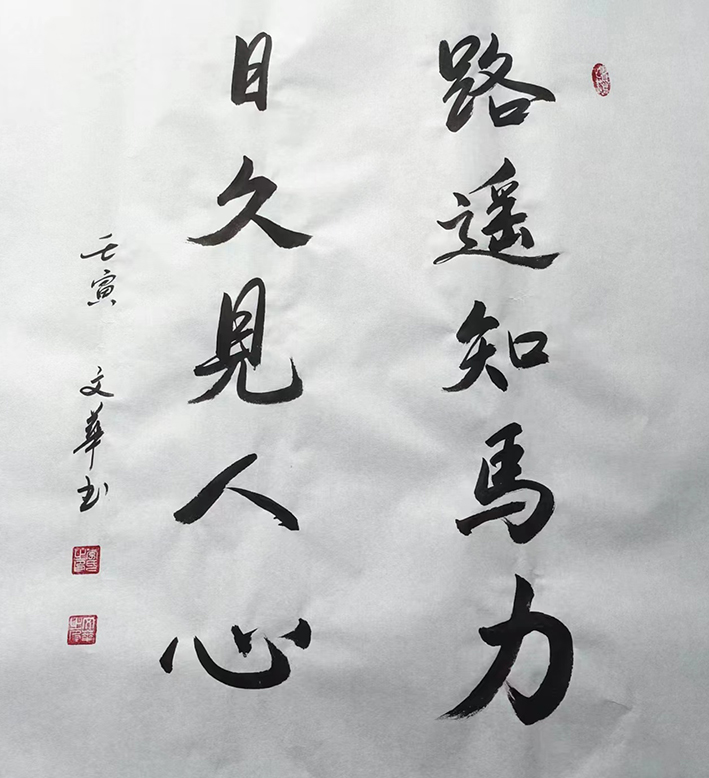 路遥知馬力
日久見人心
壬寅 文華书